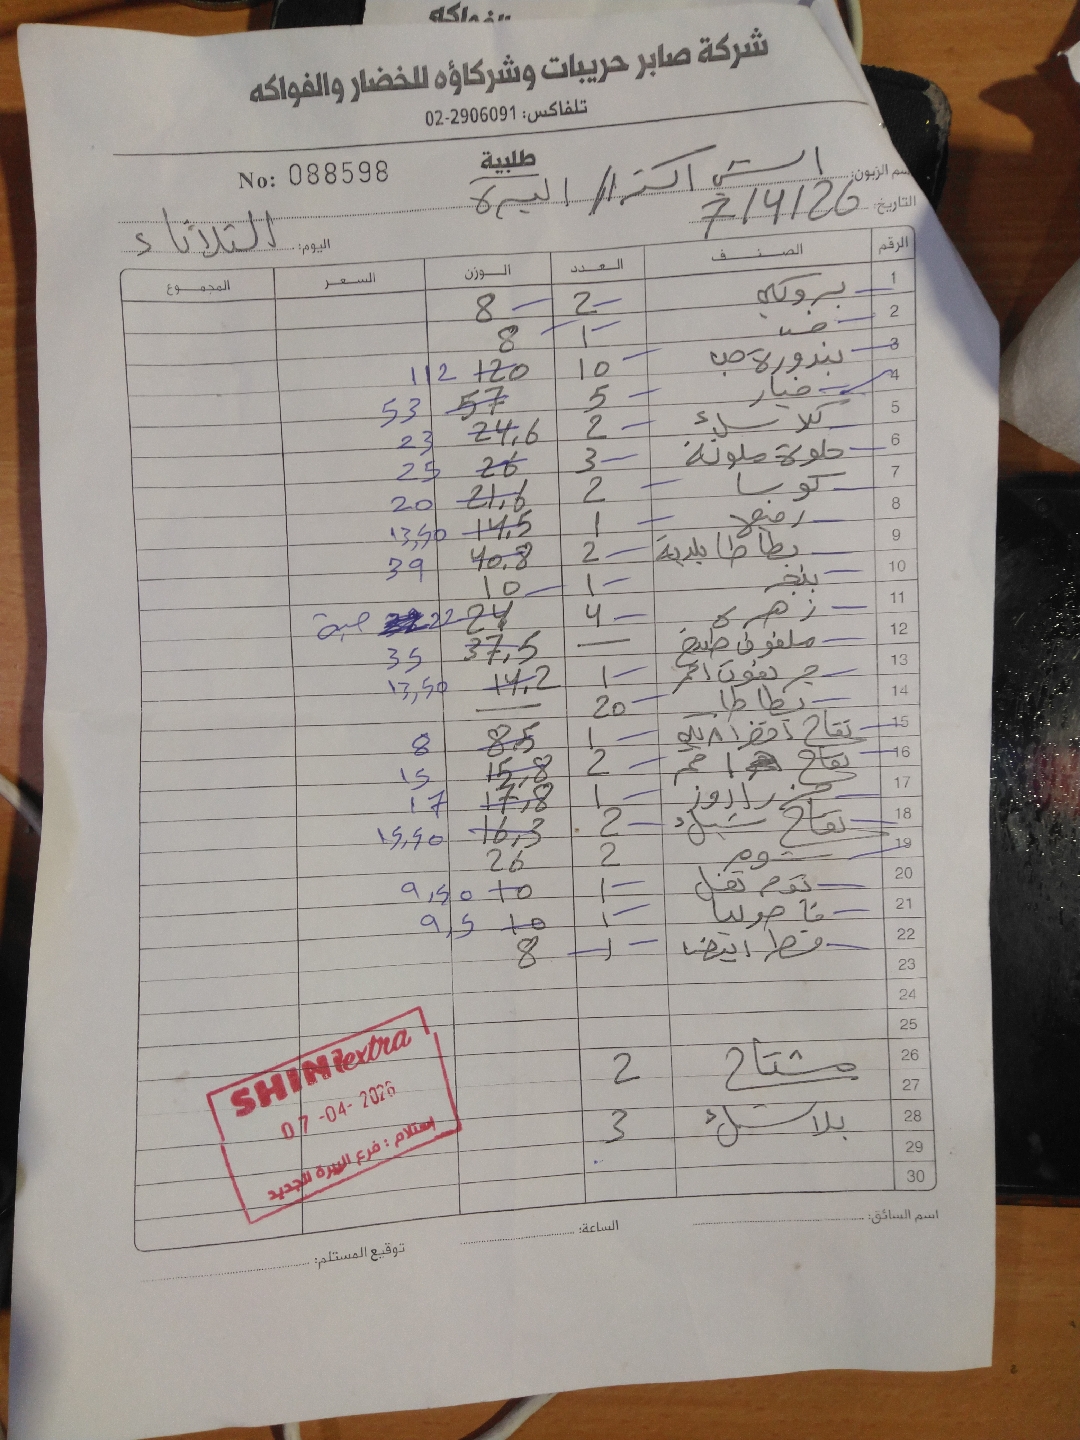 الفواكه
شركة صابر حريبات وشركاؤه للخضار والفواكه
تلفاكس: 02-2906091
طلبية
No: 088598
اسم الزبون: اكسترا // البيرة
التاريخ: 7/4/26
اليوم: الثلاثاء
الرقم الصنف العدد الوزن السعر المجموع
1 بروكلي 2 8
2 1 8
3 بندورة حب 10 120 112
4 خيار 5 57 53
5 2 24,6 23
6 حلوة ملونة 3 26 25
7 كوسا 2 21,6 20
8 1 14,5 13,50
9 بطاطا بلدية 2 40,8 39
10 بنجر 1 10
11 زهرة 4 24 22 حبة
12 ملفوف طبيخ — 37,5 35
13 1 14,2 13,50
14 بطاطا 20 —
15 تفاح اخضر 1 8,5 8
16 تفاح احمر 2 15,8 15
17 1 17,8 17
18 تفاح 2 16,3 15,50
19 ثوم 2 26
20 1 10 9,50
21 فاصوليا 1 10 9,5
22 1 8
23
24
25
26 مشتاح 2
27
28 بلاستيك 3
29
30
SHINI extra
07-04-2026
إستلام: فرع البيرة الجديد
اسم السائق: الساعة: توقيع المستلم: